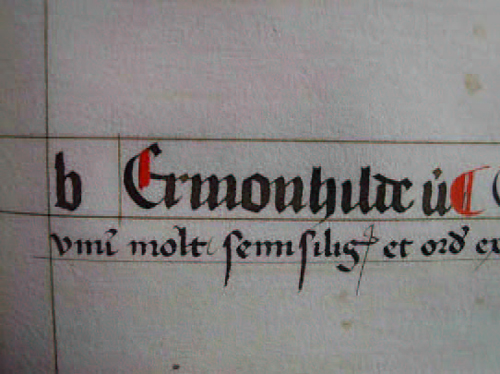 b Ermonhilde ú ¶ C
vmī molt semi silig et ord ex